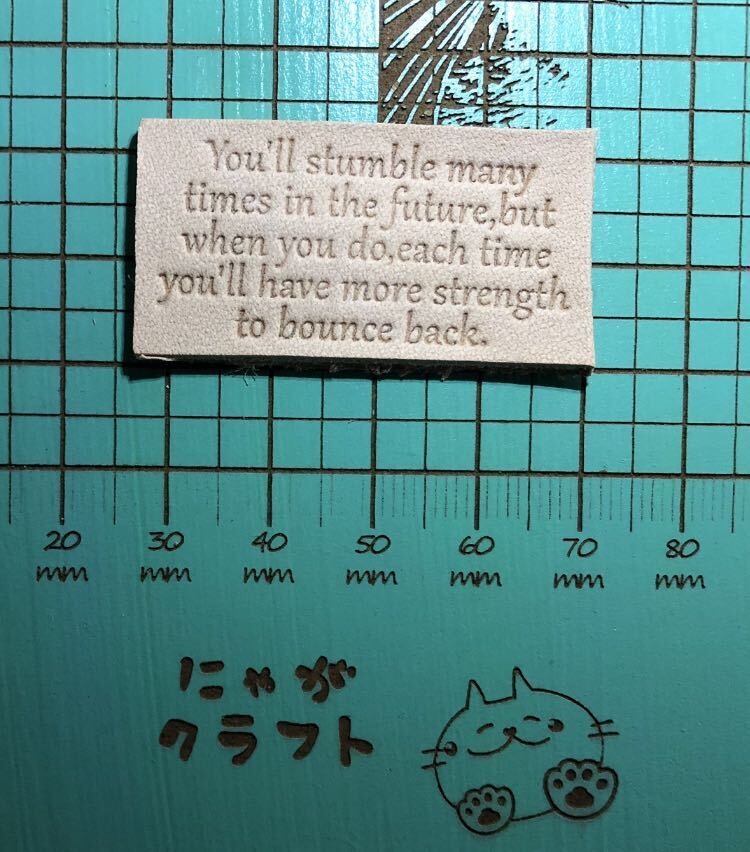 You'll stumble many
times in the future,but
when you do,each time
you'll have more strength
to bounce back.
20 30 40 50 60 70 80
mm mm mm mm mm mm mm
にゃが
クラフト